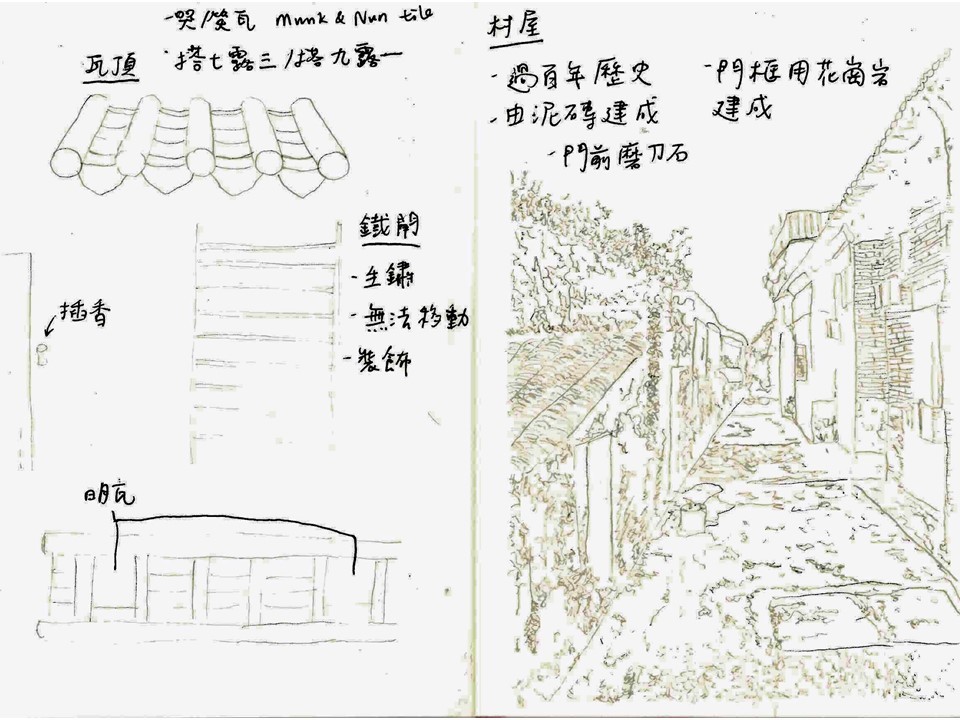 -哭/笑瓦 Munk & Nun tile
瓦頂
·搭七露三/搭九露一
鐵閘
-生鏽
-無法移動
-裝飾
插香
明瓦
村屋
-過百年歷史
-由泥磚建成
-門前磨刀石
-門框用花崗岩
建成